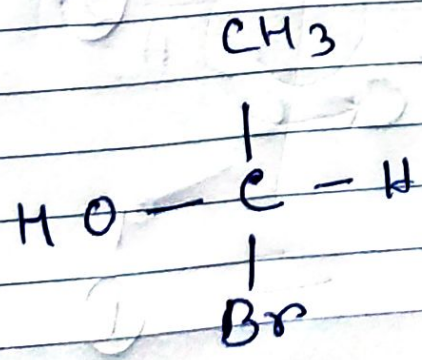 CH3
|
HO — C — H
|
Br